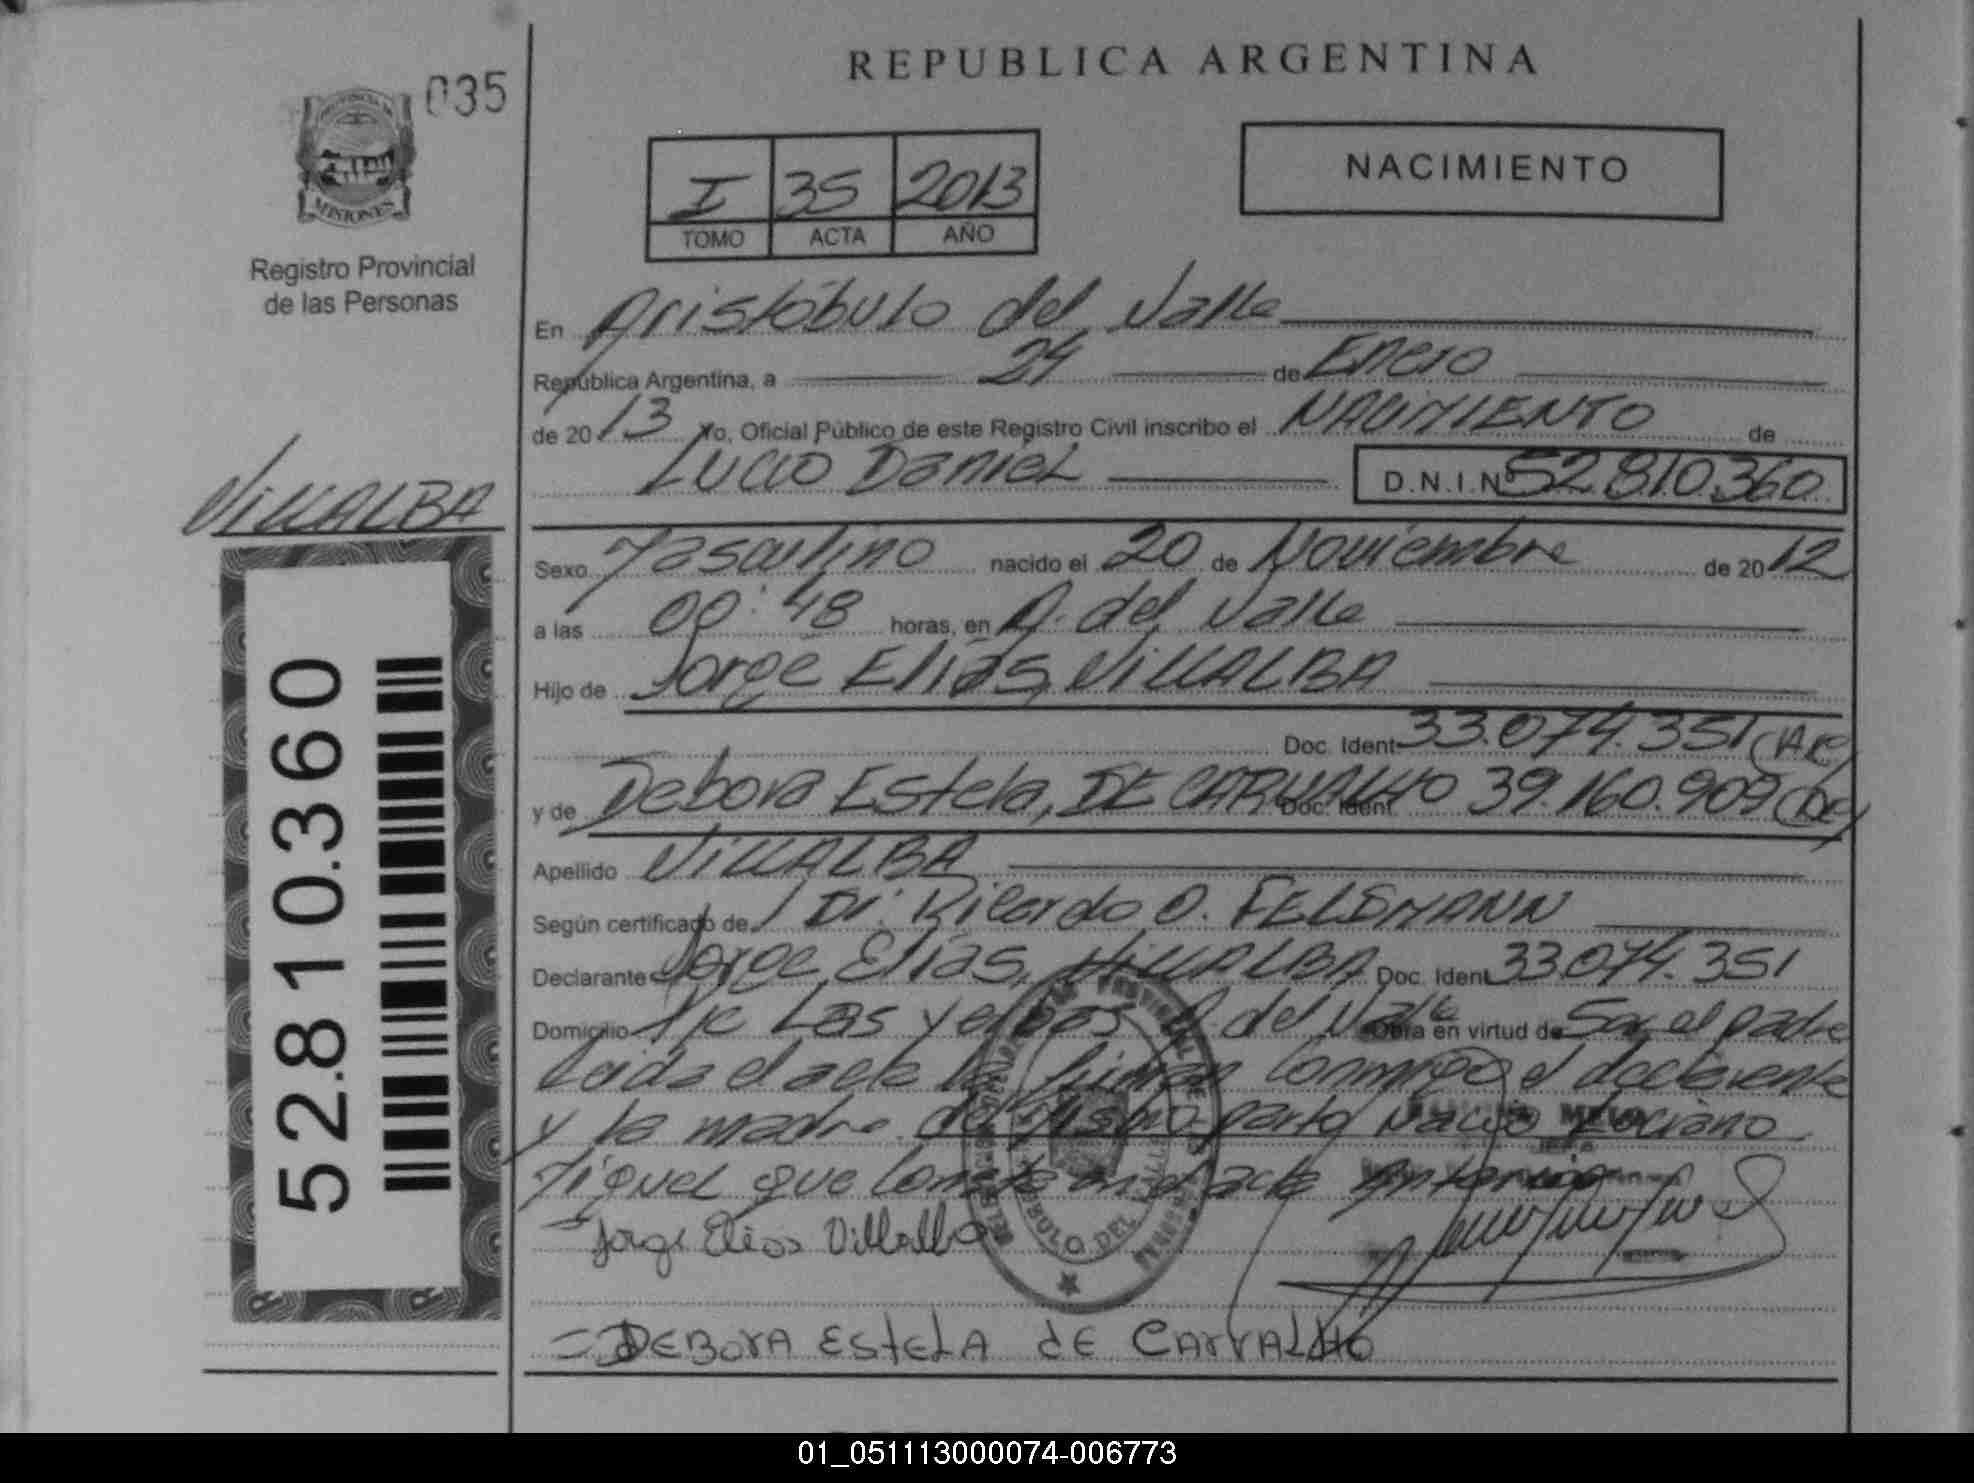 035
PROVINCIA DE
MISIONES
Registro Provincial
de las Personas
VILLALBA
52.810.360
REPUBLICA ARGENTINA
I 35 2013
TOMO ACTA AÑO
NACIMIENTO
En Aristóbulo del Valle
República Argentina, a 24 de Enero
de 2013 Yo, Oficial Público de este Registro Civil inscribo el NACIMIENTO de
Lucio Daniel D.N.I.Nº 52.810.360
Sexo Masculino nacido el 20 de Noviembre de 2012
a las 00:48 horas, en A. del Valle
Hijo de Jorge Elías, VILLALBA
Doc. Ident 33.074.351
y de Debora Estela, DE CARVALHO Doc. Ident 39.160.909
Apellido VILLALBA
Según certificado de Dr. Ricardo O. FELDMANN
Declarante Jorge Elías, VILLALBA Doc. Ident 33.074.351
Domicilio Pje Las Yerbas A. del Valle Obra en virtud de Ser el padre
Leida el acta la firman conmigo el declarante
y la madre. del mismo parto Nació Luciano
Miguel que consta en el acta anterior
Jorge Elias Villalba
DEBORA ESTELA dE CARVALHO
01_051113000074-006773